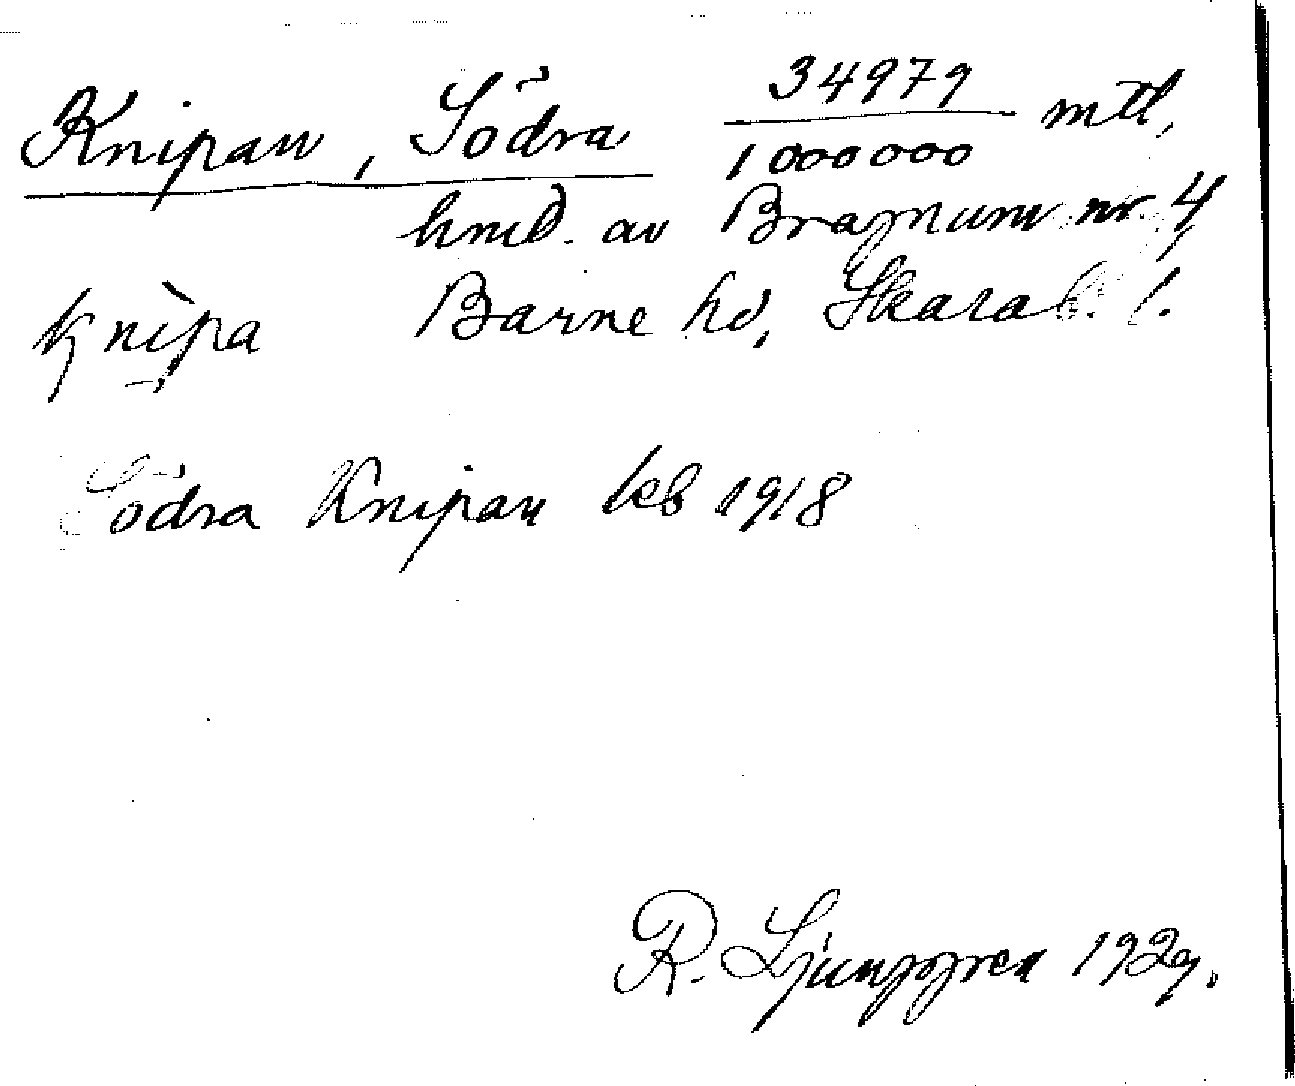 Knipan, Södra 34979/1000000 mtl,
hmd. av Bragnum nr. 4
knìpa Barne hd, Skarab. l.
Södra Knipan leb 1918
R. Ljunggren 1929.